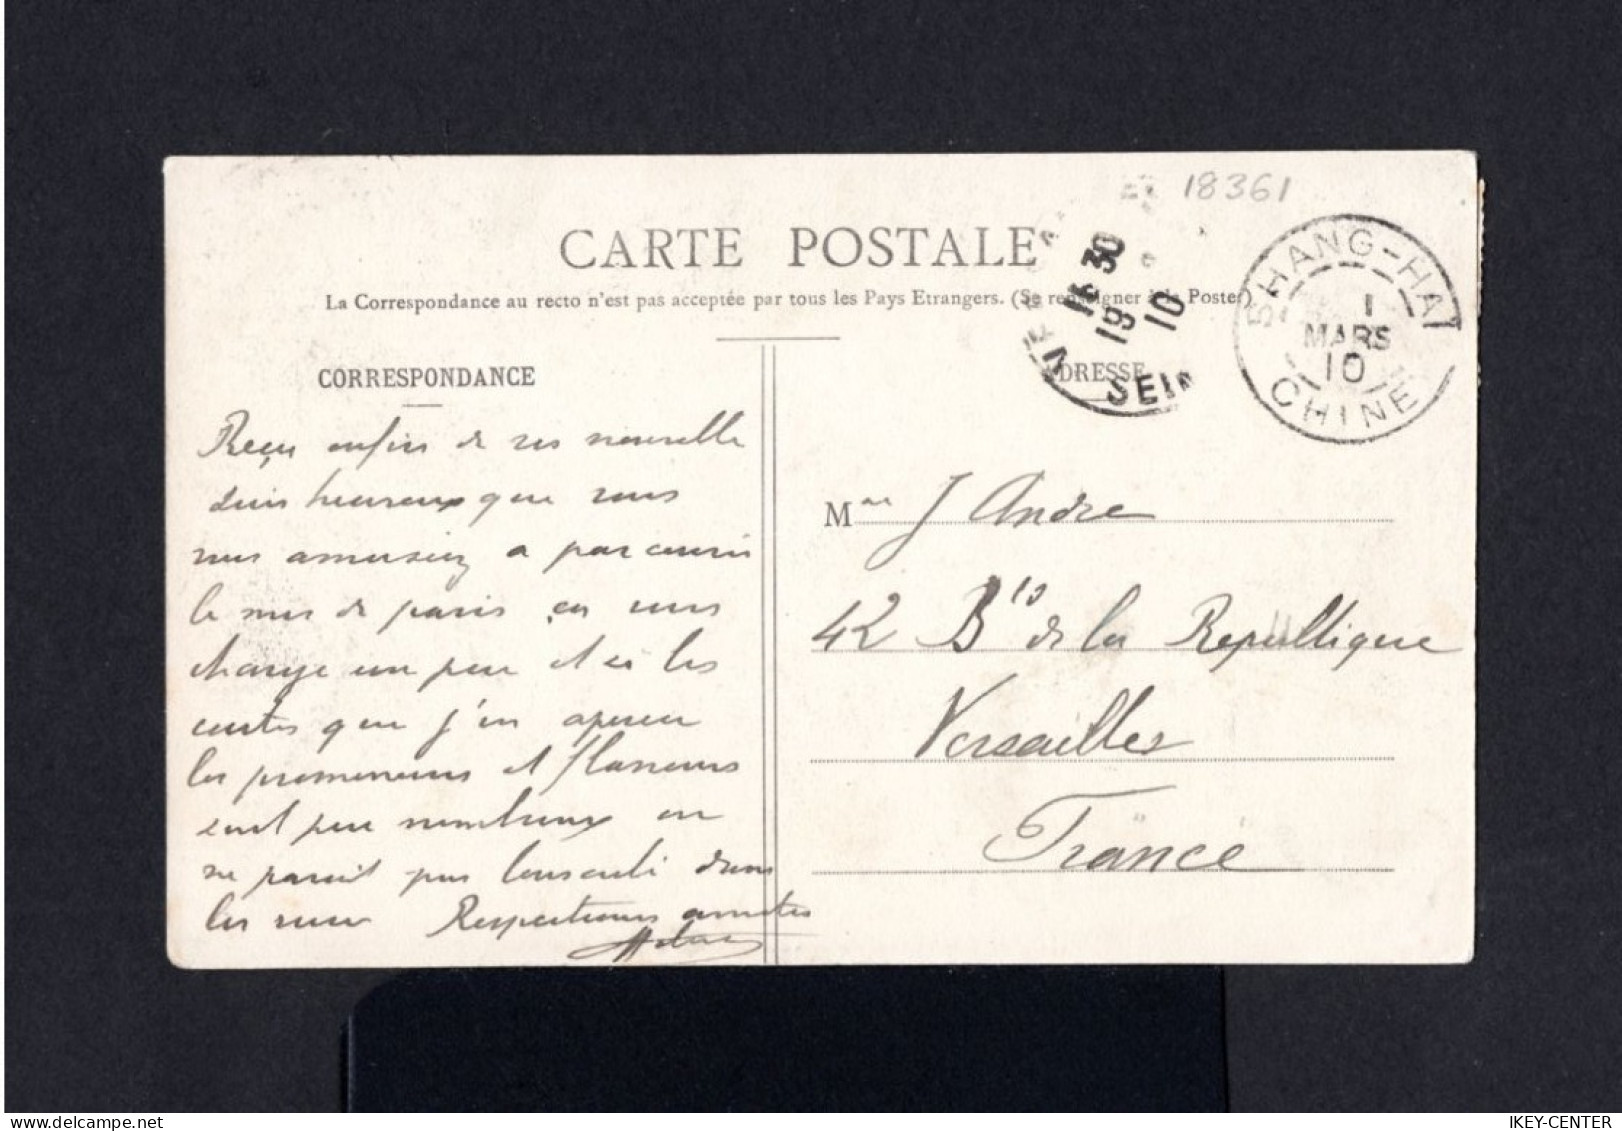 18361
CARTE POSTALE
La Correspondance au recto n'est pas acceptée par tous les Pays Etrangers. (Se renseigner à la Poste)
SHANG-HAI
1
MARS
10
CHINE
30
19
10
SEIN
CORRESPONDANCE
ADRESSE
Reçu enfin de vos nouvelle
suis heureux que vous
vous amusiez a parcourir
le mus de paris ça vous
change un peu et si les
cartes que j'en aperçu
les promeneurs et flaneurs
sont peu nombreux on
ne parait pas bousculé dans
les rues Respectueuses amities
Mme J Andre
42 Bis de la Republlique
Versailles
France
IKEY-CENTER